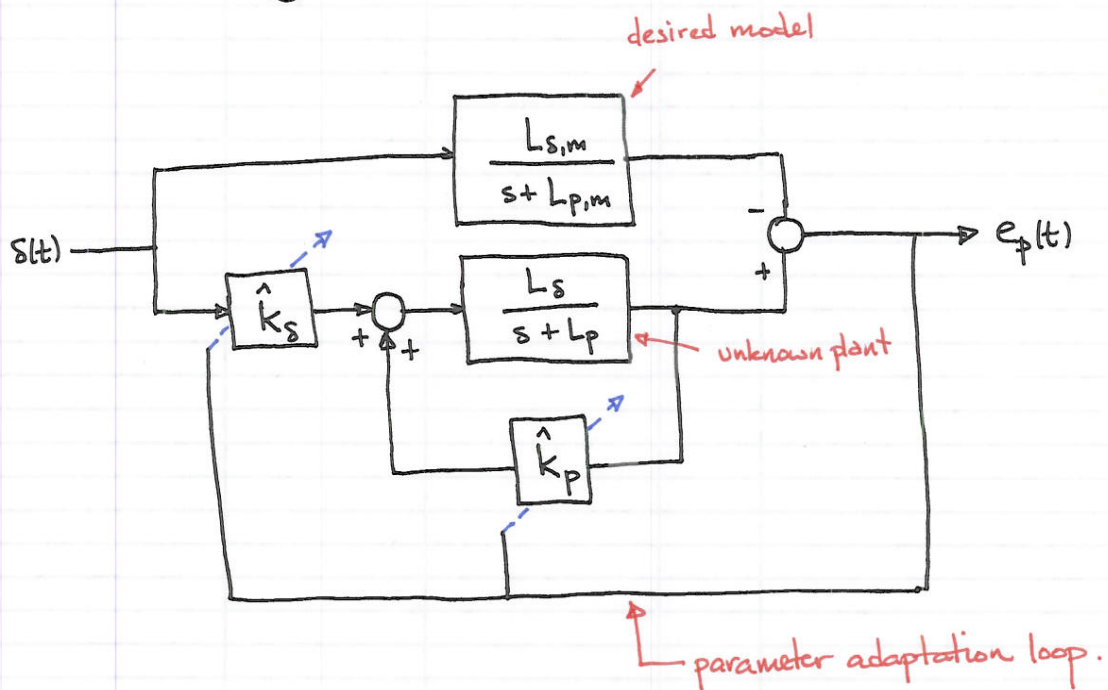 desired model
L_δ,m
s + L_p,m
δ(t)
k̂_δ
+
+
L_δ
s + L_p
-
+
e_p(t)
unknown plant
k̂_p
parameter adaptation loop.